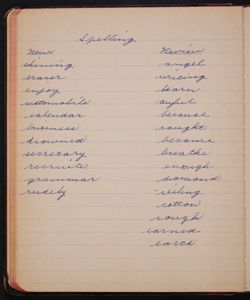 Spelling
New
shining
eraser
enjoy
automobile
calendar
business
drowned
secretary
recruits
grammar
rudely
Review
angel
writing
learn
awful
because
caught
became
breathe
enough
diamond
ceiling
cotton
cough
earned
earth